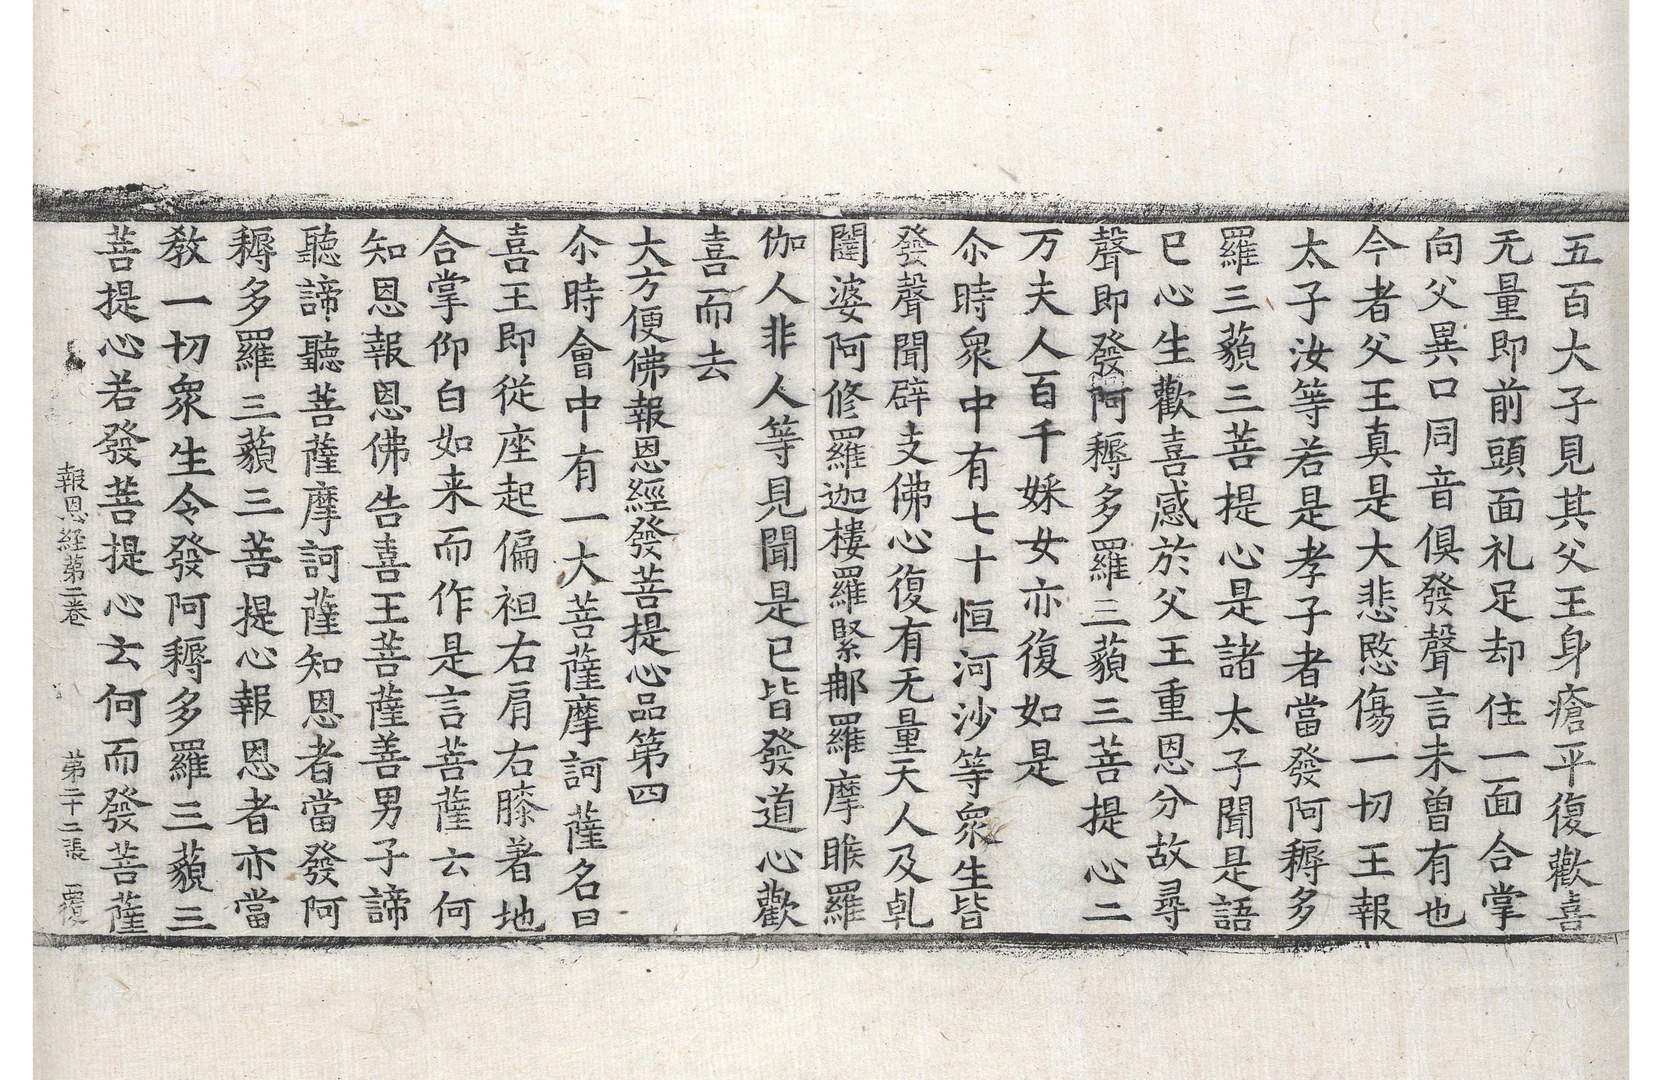 五百大子見其父王身瘡平復歡喜
无量即前頭面礼足却住一面合掌
向父異口同音俱發聲言未曽有也
今者父王真是大悲愍傷一切王報
太子汝等若是孝子者當發阿耨多
羅三藐三菩提心是諸太子聞是語
已心生歡喜感於父王重恩分故尋
聲即發阿耨多羅三藐三菩提心二
万夫人百千婇女亦復如是
尒時衆中有七十恒河沙等衆生皆
發聲聞辟支佛心復有无量天人及乹
闥婆阿修羅迦樓羅緊那羅摩睺羅
伽人非人等見聞是已皆發道心歡
喜而去
大方便佛報恩經發菩提心品第四
尒時會中有一大菩薩摩訶薩名曰
喜王即從座起偏袒右肩右膝著地
合掌仰白如来而作是言菩薩云何
知恩報恩佛告喜王菩薩善男子諦
聽諦聽菩薩摩訶薩知恩者當發阿
耨多羅三藐三菩提心報恩者亦當
教一切衆生令發阿耨多羅三藐三
菩提心若發菩提心云何而發菩薩
報恩経第二卷 第二十二張 覆